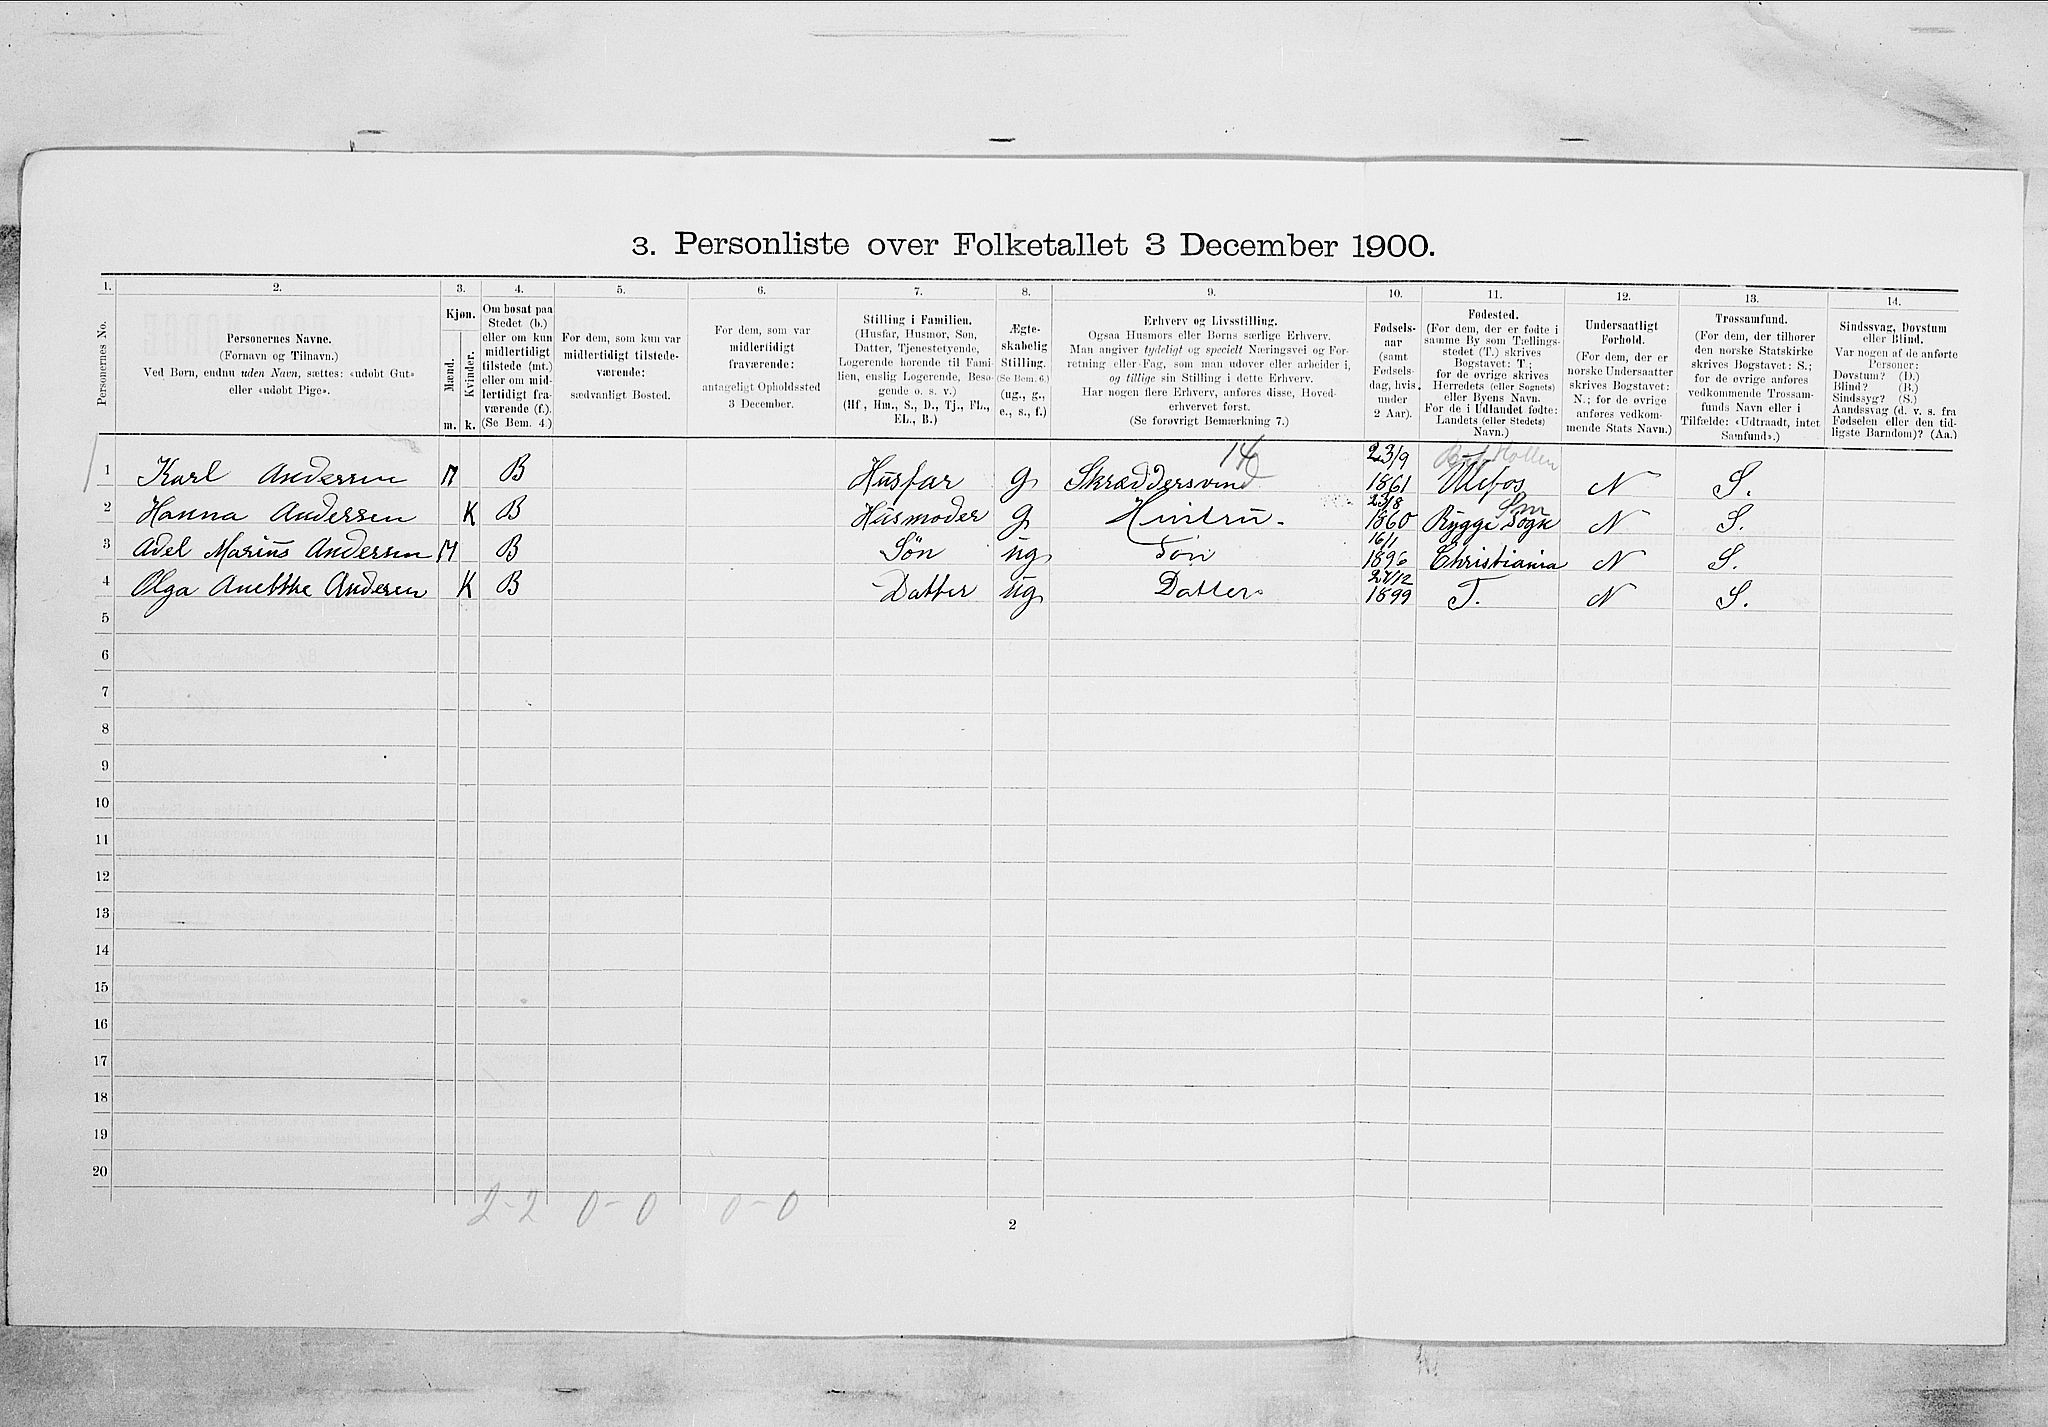 3. Personliste over Folketallet 3 December 1900.
1. 2. 3. 4. 5. 6. 7. 8. 9. 10. 11. 12. 13. 14.
Personernes No.
Personernes Navne.
(Fornavn og Tilnavn.)
Ved Børn, endnu uden Navn, sættes: «udøbt Gut»
eller «udøbt Pige».
Kjøn.
Mænd.
Kvinder.
m. k.
Om bosat paa
Stedet (b.)
eller om kun
midlertidigt
tilstede (mt.)
eller om mid-
lertidigt fra-
værende (f.).
(Se Bem. 4.)
For dem, som kun var
midlertidigt tilstede-
værende:
sædvanligt Bosted.
For dem, som var
midlertidigt
fraværende:
antageligt Opholdssted
3 December.
Stilling i Familien.
(Husfar, Husmor, Søn,
Datter, Tjenestetyende,
Logerende hørende til Fami-
lien, enslig Logerende, Besø-
gende o. s. v.)
(Hf., Hm., S., D., Tj., FL.,
EL., B.)
Ægte-
skabelig
Stilling.
(Se Bem. 6.)
(ug., g.,
e., s., f.)
Erhverv og Livsstilling.
Ogsaa Husmors eller Børns særlige Erhverv.
Man angiver tydeligt og specielt Næringsvei og For-
retning eller Fag, som man udøver eller arbeider i,
og tillige sin Stilling i dette Erhverv.
Har nogen flere Erhverv, anføres disse, Hoved-
erhvervet først.
(Se forøvrigt Bemærkning 7.)
Fødsels-
aar
(samt
Fødsels-
dag, hvis
under
2 Aar).
Fødested.
(For dem, der er fødte i
samme By som Tællings-
stedet (T.) skrives
Bogstavet: T.;
for de øvrige skrives
Herredets (eller Sognets)
eller Byens Navn.
For de i Udlandet fødte:
Landets (eller Stedets)
Navn.)
Undersaatligt
Forhold.
(For dem, der er
norske Undersaatter
skrives Bogstavet:
N.; for de øvrige
anføres vedkom-
mende Stats Navn.)
Trossamfund.
(For dem, der tilhører
den norske Statskirke
skrives Bogstavet: S.;
for de øvrige anføres
vedkommende Trossam-
funds Navn eller i
Tilfælde: «Udtraadt, intet
Samfund».)
Sindssvag, Døvstum
eller Blind.
Var nogen af de anførte
Personer:
Døvstum? (D.)
Blind? (B.)
Sindssyg? (S.)
Aandssvag (d. v. s. fra
Fødselen eller den tid-
ligste Barndom)? (Aa.)
14 23/9 Hollen
1 Karl Andersen M B Husfar g Skræddersvend 1861 Ulefos N S.
23/8
2 Hanna Andersen K B Husmoder g Hustru. 1860 Rygge Sogn N S.
16/1
3 Adel Marius Andersen M B Søn ug Søn 1896 Christiania N S.
27/12
4 Olga Anethe Andersen K B Datter ug Datter. 1899 T. N S.
5
6
7
8
9
10
11
12
13
14
15
16
17
18
19
20
2-2 0-0 0-0
2